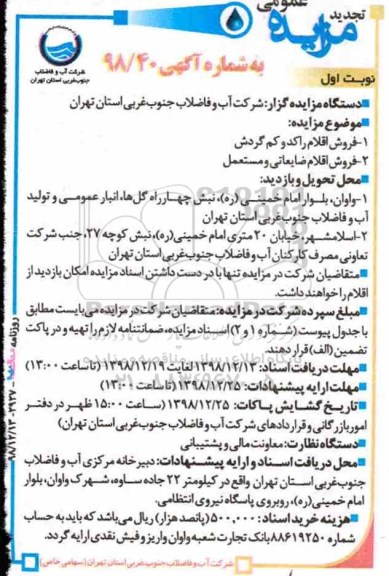 تجدید
مزایده
عمومی
به شماره آگهی ۹۸/۴۰
شرکت آب و فاضلاب
جنوب غربی استان تهران
نوبت اول
■دستگاه مزایده گزار: شرکت آب و فاضلاب جنوب غربی استان تهران
■موضوع مزایده:
۱-فروش اقلام راکد و کم گردش
۲-فروش اقلام ضایعاتی و مستعمل
■محل تحویل و بازدید:
۱-واوان، بلوار امام خمینی (ره)، نبش چهارراه گل‌ها، انبار عمومی و تولید
آب و فاضلاب جنوب غربی استان تهران
۲-اسلامشهر، خیابان ۲۰ متری امام خمینی(ره)، نبش کوچه ۲۷، جنب شرکت
تعاونی مصرف کارکنان آب و فاضلاب جنوب غربی استان تهران
■متقاضیان شرکت در مزایده تنها با در دست داشتن اسناد مزایده امکان بازدید از
اقلام را خواهند داشت.
■مبلغ سپرده شرکت در مزایده: متقاضیان شرکت در مزایده می‌بایست مطابق
با جدول پیوست (شماره ۱ و ۲) اسناد مزایده، ضمانتنامه لازم را تهیه و در پاکت
تضمین (الف) قرار دهند.
■مهلت دریافت اسناد: ۱۳۹۸/۱۲/۱۳ لغایت ۱۳۹۸/۱۲/۱۹ (تا ساعت ۱۳:۰۰)
■مهلت ارایه پیشنهادات: ۱۳۹۸/۱۲/۲۵ (تا ساعت ۱۳:۰۰)
■تاریخ گشایش پاکات: ۱۳۹۸/۱۲/۲۵ (ساعت ۱۵:۰۰ ظهر در دفتر
امور بازرگانی و قراردادهای شرکت آب و فاضلاب جنوب غربی استان تهران)
■دستگاه نظارت: معاونت مالی و پشتیبانی
■محل دریافت اسناد و ارایه پیشنهادات: دبیرخانه مرکزی آب و فاضلاب
جنوب غربی استان تهران واقع در کیلومتر ۲۲ جاده ساوه، شهرک واوان، بلوار
امام خمینی(ره)، روبروی پاسگاه نیروی انتظامی.
■هزینه خرید اسناد: ۵۰۰,۰۰۰ (پانصد هزار) ریال می‌باشد که باید به حساب
شماره ۸۸۶۱۹۲۵۰ بانک تجارت شعبه واوان واریز و فیش نقدی ارایه گردد.
شرکت آب و فاضلاب جنوب غربی استان تهران (سهامی خاص)
۹۸/۱۲/۱۳ - ۲۹۲۷